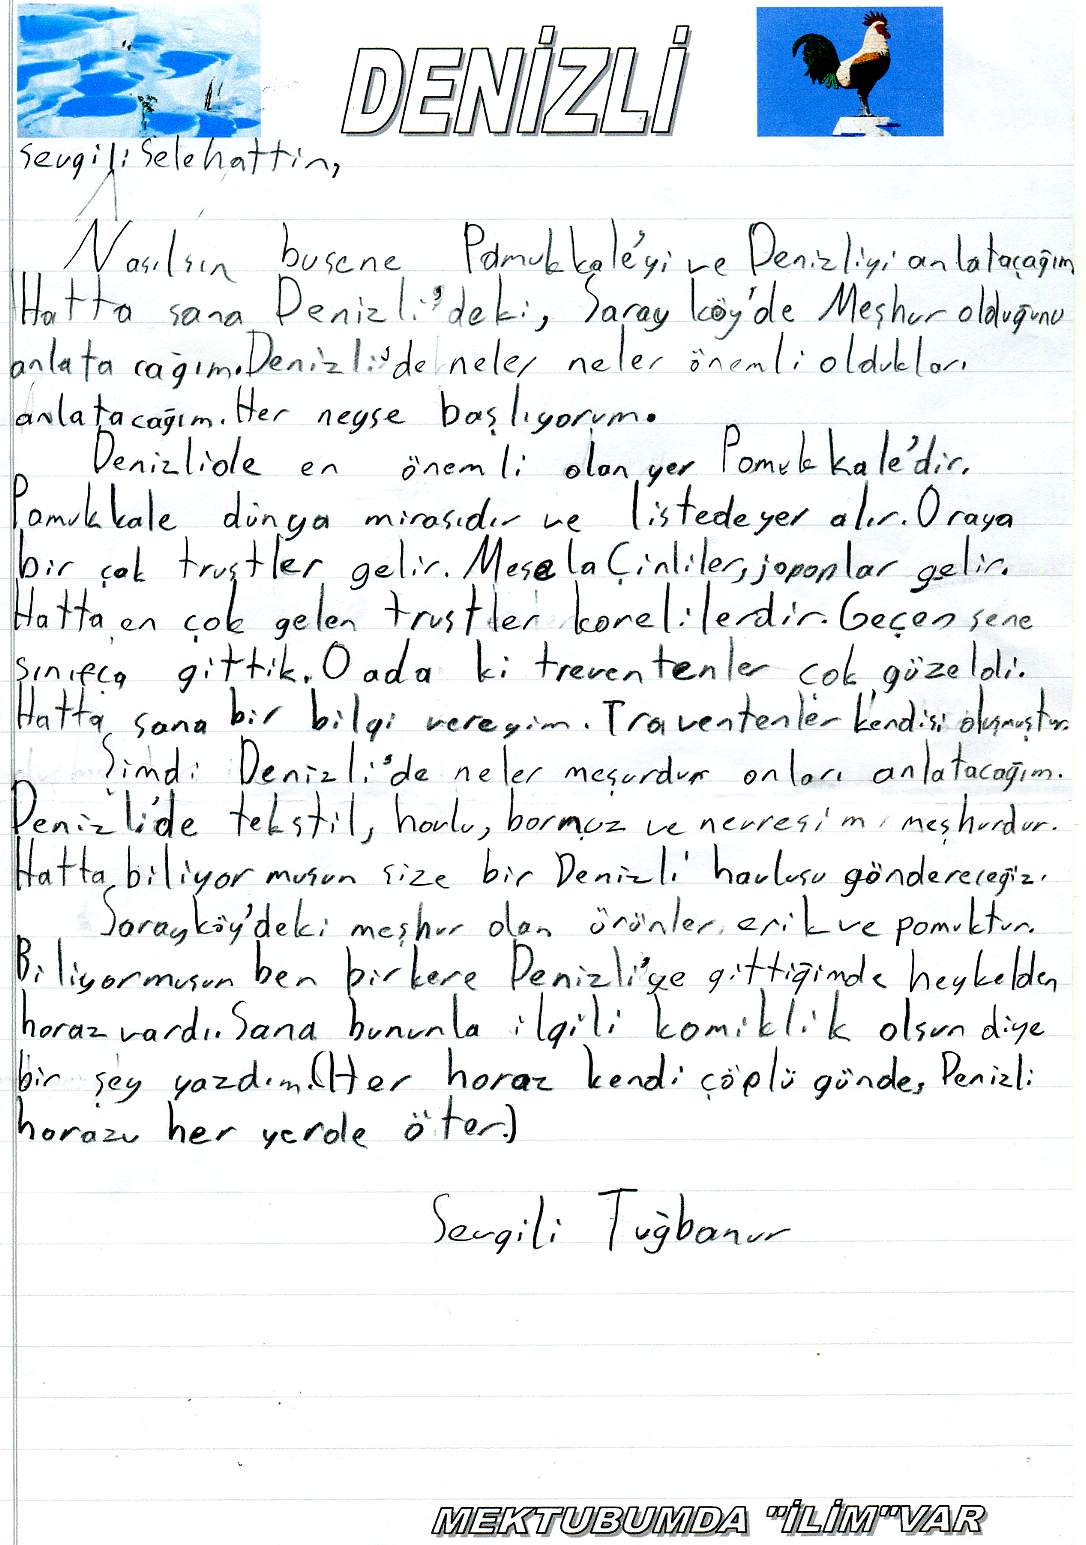 DENİZLİ
Sevgili Selehattin,
Nasılsın busene Pamukkale'yi ve Denizliyi anlatacağım
Hatta sana Denizli'deki, Sarayköy'de Meşhur olduğunu
anlatacağım. Denizli'de neler neler önemli oldukları
anlatacağım. Her neyse başlıyorum.
Denizlide en önemli olan yer Pamukkale'dir.
Pamukkale dünya mirasıdır ve listede yer alır. Oraya
bir çok trustler gelir. Mesela Çinliler, joponlar gelir.
Hatta en çok gelen trustler korelilerdir. Geçen sene
sınıfça gittik. O ada ki treventenler çok gözeldi.
Hatta sana bir bilgi vereyim. Traventenler kendisi oluşmuştur.
Şimdi Denizli'de neler meşurdur onları anlatacağım.
Denizli'de tekstil, havlu, bornoz ve nevresim meşhurdur.
Hatta biliyor musun size bir Denizli havlusu göndereceğiz.
Sarayköy'deki meşhur olan ürünler erik ve pamuktur.
Biliyormusun ben birkere Denizli'ye gittiğimde heykelden
horaz vardı. Sana bununla ilgili komiklik olsun diye
bir şey yazdım. (Her horaz kendi çöplü günde, Denizli
horazu her yerde öter.)
Sevgili Tuğbanur
MEKTUBUMDA "İLİM"VAR